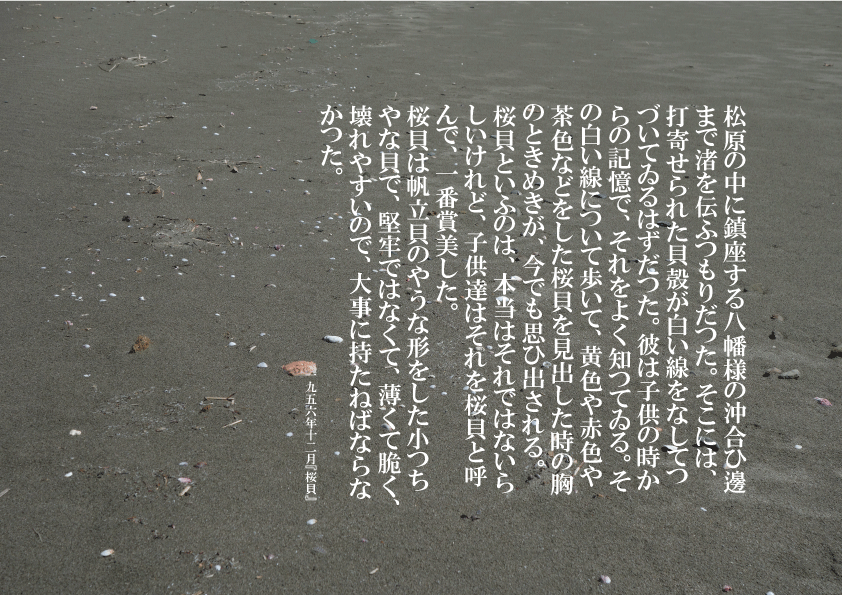 松原の中に鎮座する八幡様の沖合ひ邊
まで渚を伝ふつもりだつた。そこには、
打寄せられた貝殻が白い線をなしてつ
づいてゐるはずだつた。彼は子供の時か
らの記憶で、それをよく知つてゐる。そ
の白い線について歩いて、黄色や赤色や
茶色などをした桜貝を見出した時の胸
のときめきが、今でも思ひ出される。
桜貝といふのは、本当はそれではないら
しいけれど、子供達はそれを桜貝と呼
んで、一番賞美した。
桜貝は帆立貝のやうな形をした小つち
やな貝で、堅牢ではなくて、薄くて脆く、
壊れやすいので、大事に持たねばならな
かつた。
九五六年十二月『桜貝』